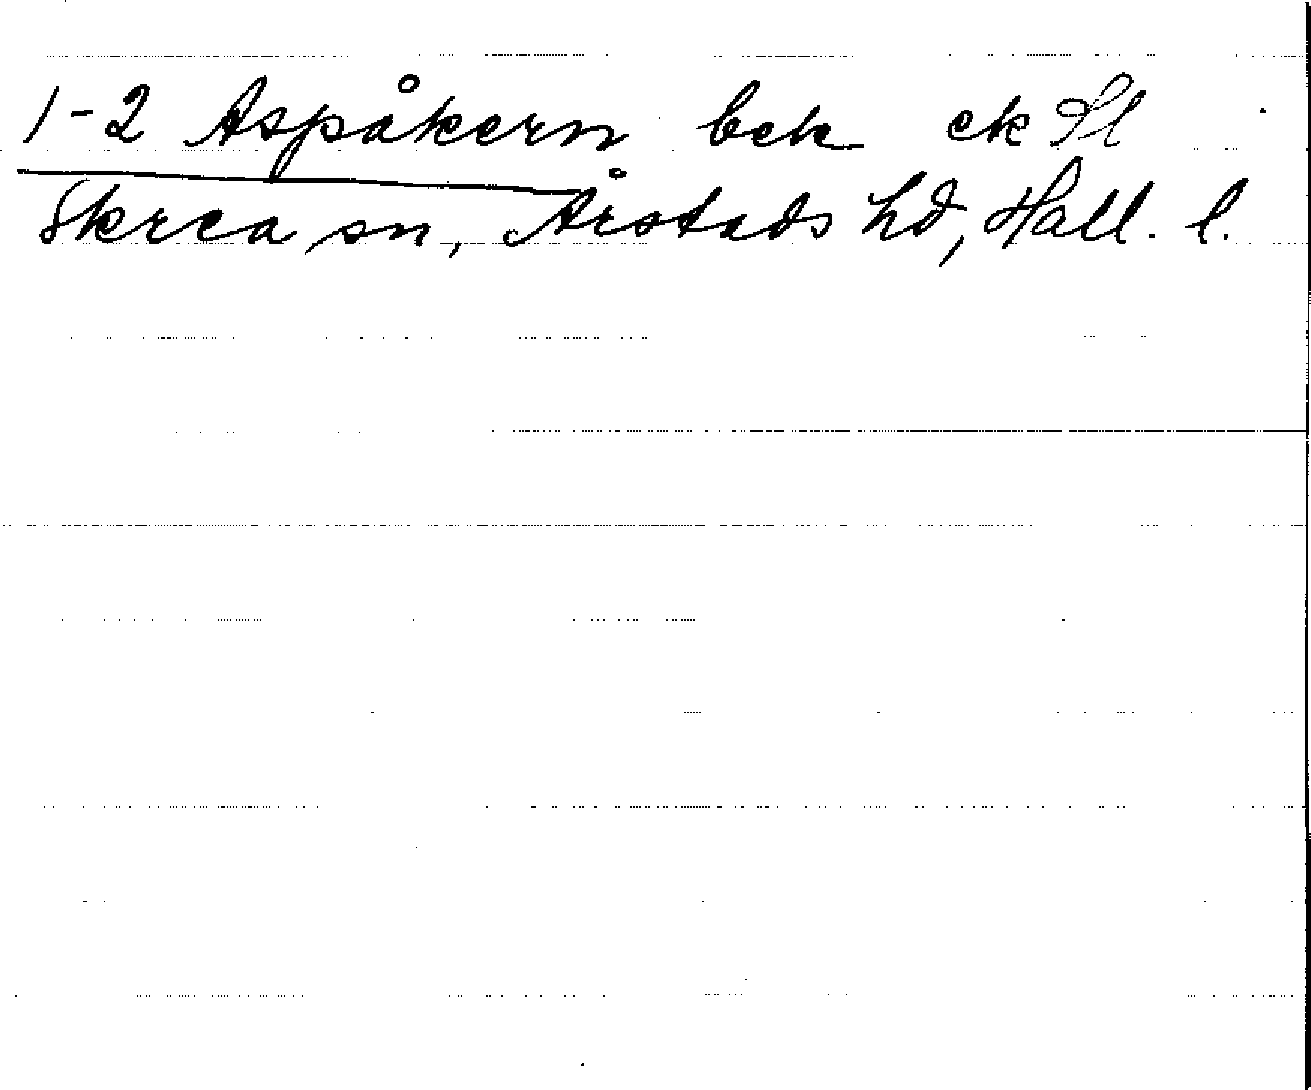 1-2 Aspåkern bek ek Pl
Skrea sn, Årstads hd, Hall. l.